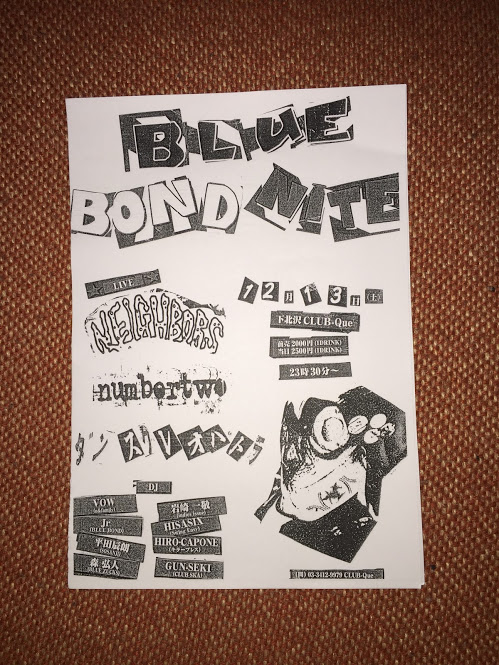 BLUE
BOND NITE
LIVE
NEIGHBORS
numbertwo
12月13日(土)
下北沢 CLUB-Que
前売 2000円 (1DRINK)
当日 2500円 (1DRINK)
23時30分～
DJ
VOW
Jr.
(BLUE BOND)
平田辰朗
森 弘人
岩崎 一敬
HISASIX
HIRO-CAPONE
(キラープレス)
GUN-SEKI
(CLUB SKA)
(問) 03-3412-9979 CLUB-Que